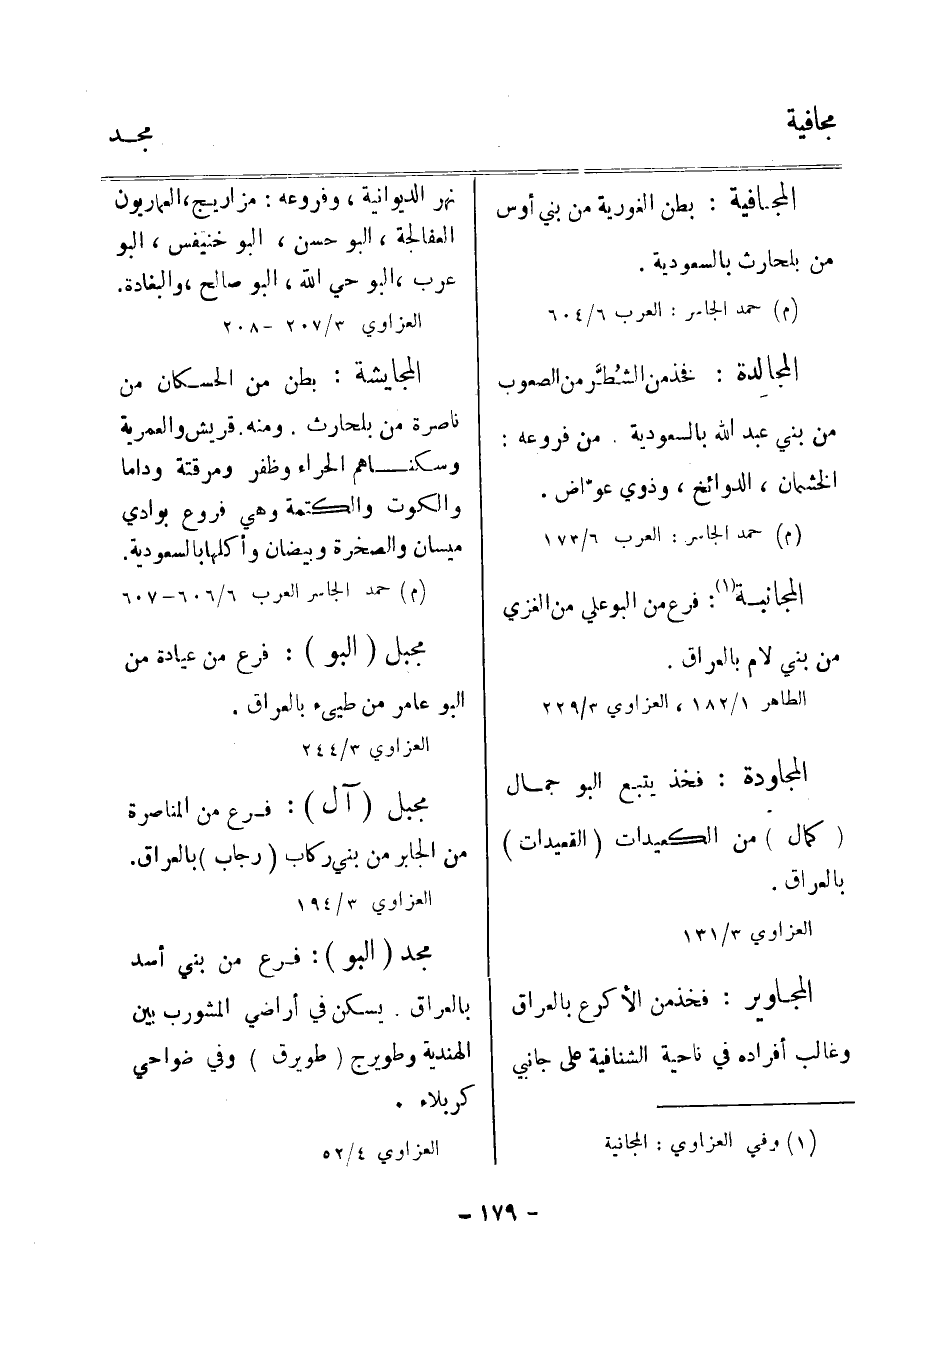 مجافية
مجــد
المجـافية : بطن الغورية من بني أوس
من بلحارث بالسعودية .
(م) حمد الجاسر : العرب ٦٠٤/٦
المجالدة : فخذ من الشُطَّر من الصعوب
من بني عبد الله بالسعودية . من فروعه :
الخشمان ، الدوائخ ، وذوي عوّاض .
(م) حمد الجاسر : العرب ١٧٣/٦
المجانبـة(١): فرع من البوعلي من الغزي
من بني لام بالعراق .
الطاهر ١٨٢/١ ، العزاوي ٢٢٩/٣
المجاودة : فخذ يتبع البو جمـال
( كمال ) من الكعيدات ( القعيدات )
بالعراق .
العزاوي ١٣١/٣
المجـاوير : فخذ من الأكرع بالعراق
وغالب أفراده في ناحية الشنافية على جانبي
(١) وفي العزاوي : المجانية
نهر الديوانية ، وفروعه : مزاريج، العماريون
العفالجة ، البو حسن ، البو خنيفس ، البو
عرب ،البو حي الله ، البو صالح ،والبغادة.
العزاوي ٢٠٧/٣ -٢٠٨
المجايشة : بطن من الحسكان من
ناصرة من بلحارث . ومنه. قريش والعمرية
وسكنــاهم الحراء وظفر ومرقتة وداما
والكوت والكتمة وهي فروع بوادي
ميسان والصخرة وبيضان وأكلها بالسعودية.
(م) حمد الجاسر العرب ٦٠٦/٦-٦٠٧
مجبل ( البو ) : فرع من عيادة من
البو عامر من طيىء بالعراق .
العزاوي ٢٤٤/٣
مجبل ( آل ) : فـرع من المناصرة
من الجابر من بني ركاب ( رجاب ) بالعراق.
العزاوي ١٩٤/٣
مجد ( البو ) : فـرع من بني أسد
بالعراق . يسكن في أراضي المشورب بين
الهندية وطويرج ( طويرق ) وفي ضواحي
كربلاء .
العزاوي ٥٢/٤
- ١٧٩ -